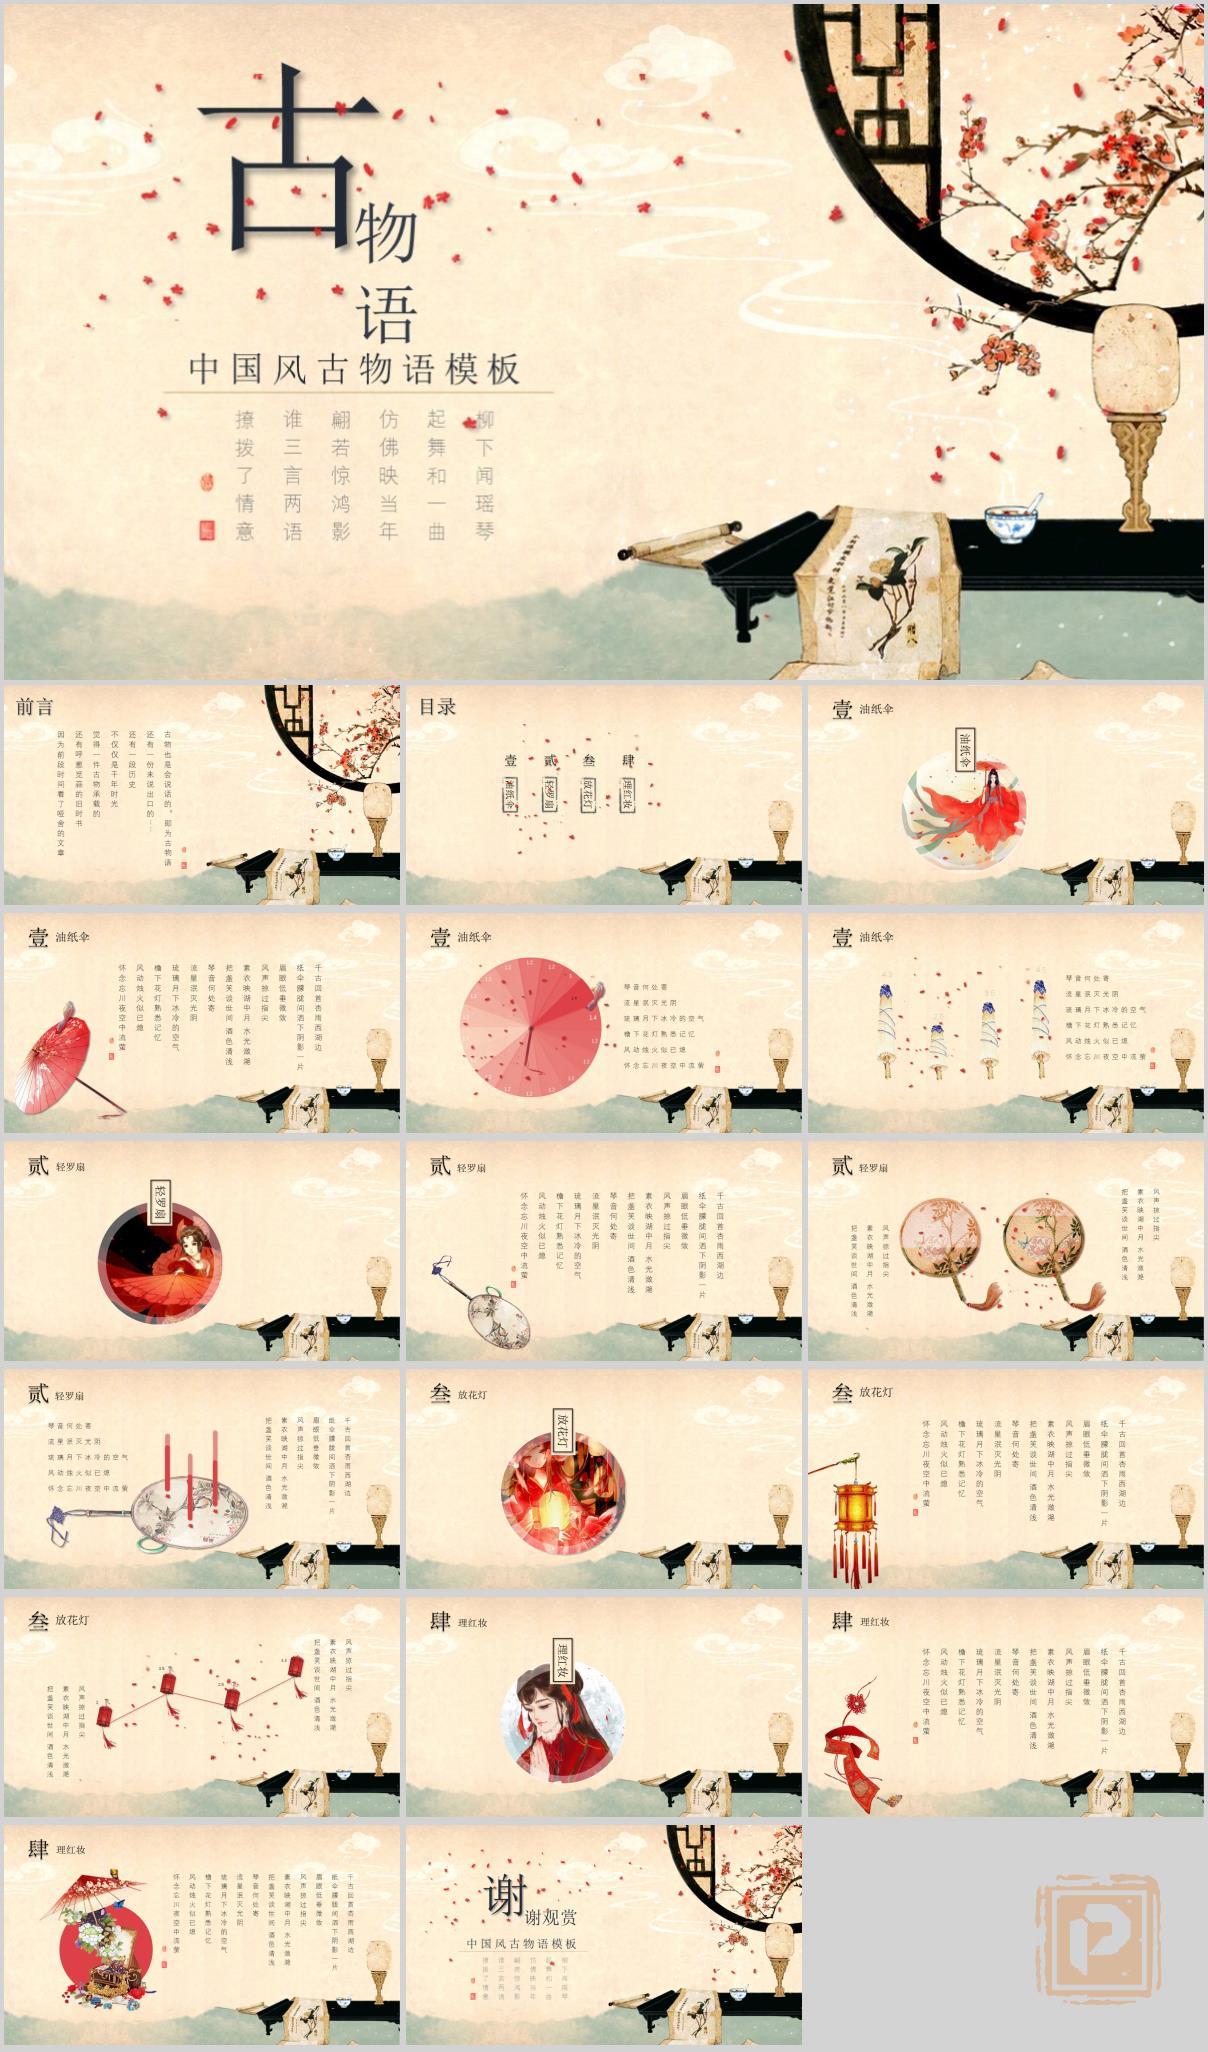 古物语
中国风古物语模板
柳下闻瑶琴
起舞和一曲
仿佛映当年
翩若惊鸿影
谁三言两语
撩拨了情意
前言
古物也是会说话的。即为古物语
还有一份未说出口的……
还有一段历史
不仅仅是千年时光
觉得一件古物承载的
还有呼葱觅蒜的旧时书
因为前段时间看了哑舍的文章
目录
壹 油纸伞
贰 轻罗扇
叁 放花灯
肆 理红妆
壹 油纸伞
油纸伞
壹 油纸伞
千古回首杏雨西湖边
纸伞朦胧间洒下阴影一片
眉眼低垂微敛
风声掠过指尖
素衣映湖中月 水光潋滟
把盏笑谈世间 酒色清浅
琴音何处寄
流星泯灭光阴
琉璃月下冰冷的空气
檐下花灯熟悉记忆
风动烛火似已熄
怀念忘川夜空中流萤
壹 油纸伞
琴音何处寄
流星泯灭光阴
琉璃月下冰冷的空气
檐下花灯熟悉记忆
风动烛火似已熄
怀念忘川夜空中流萤
壹 油纸伞
琴音何处寄
流星泯灭光阴
琉璃月下冰冷的空气
檐下花灯熟悉记忆
风动烛火似已熄
怀念忘川夜空中流萤
贰 轻罗扇
轻罗扇
贰 轻罗扇
千古回首杏雨西湖边
纸伞朦胧间洒下阴影一片
眉眼低垂微敛
风声掠过指尖
素衣映湖中月 水光潋滟
把盏笑谈世间 酒色清浅
琴音何处寄
流星泯灭光阴
琉璃月下冰冷的空气
檐下花灯熟悉记忆
风动烛火似已熄
怀念忘川夜空中流萤
贰 轻罗扇
风声掠过指尖
素衣映湖中月 水光潋滟
把盏笑谈世间 酒色清浅
风声掠过指尖
素衣映湖中月 水光潋滟
把盏笑谈世间 酒色清浅
贰 轻罗扇
琴音何处寄
流星泯灭光阴
琉璃月下冰冷的空气
风动烛火似已熄
怀念忘川夜空中流萤
千古回首杏雨西湖边
纸伞朦胧间洒下阴影一片
眉眼低垂微敛
风声掠过指尖
素衣映湖中月 水光潋滟
把盏笑谈世间 酒色清浅
叁 放花灯
放花灯
叁 放花灯
千古回首杏雨西湖边
纸伞朦胧间洒下阴影一片
眉眼低垂微敛
风声掠过指尖
素衣映湖中月 水光潋滟
把盏笑谈世间 酒色清浅
琴音何处寄
流星泯灭光阴
琉璃月下冰冷的空气
檐下花灯熟悉记忆
风动烛火似已熄
怀念忘川夜空中流萤
叁 放花灯
风声掠过指尖
素衣映湖中月 水光潋滟
把盏笑谈世间 酒色清浅
风声掠过指尖
素衣映湖中月 水光潋滟
把盏笑谈世间 酒色清浅
肆 理红妆
理红妆
肆 理红妆
千古回首杏雨西湖边
纸伞朦胧间洒下阴影一片
眉眼低垂微敛
风声掠过指尖
素衣映湖中月 水光潋滟
把盏笑谈世间 酒色清浅
琴音何处寄
流星泯灭光阴
琉璃月下冰冷的空气
檐下花灯熟悉记忆
风动烛火似已熄
怀念忘川夜空中流萤
肆 理红妆
千古回首杏雨西湖边
纸伞朦胧间洒下阴影一片
眉眼低垂微敛
风声掠过指尖
素衣映湖中月 水光潋滟
把盏笑谈世间 酒色清浅
琴音何处寄
流星泯灭光阴
琉璃月下冰冷的空气
檐下花灯熟悉记忆
风动烛火似已熄
怀念忘川夜空中流萤
谢谢观赏
中国风古物语模板
柳下闻瑶琴
起舞和一曲
仿佛映当年
翩若惊鸿影
谁三言两语
撩拨了情意